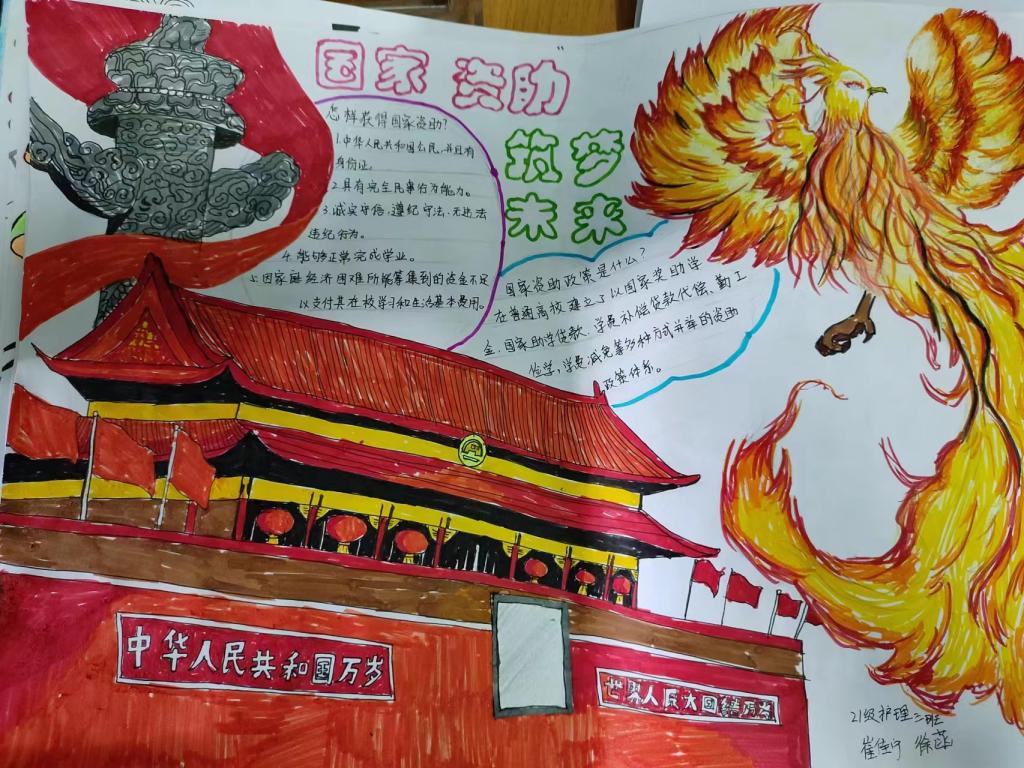 国家 资助
筑梦
未来
怎样获得国家资助?
1.中华人民共和国公民,并且有
身份证。
2.具有完全民事行为能力。
3.诚实守信,遵纪守法,无违法
违纪行为。
4.能够正常完成学业。
5.因家庭经济困难所能筹集到的资金不足
以支付其在校学习和生活基本费用。
国家资助政策是什么?
在普通高校建立了以国家奖助学
金、国家助学贷款、学费补偿贷款代偿、勤工
俭学,学费减免等多种方式并举的资助
政策体系。
中华人民共和国万岁
世界人民大团结万岁
21级护理二班
崔佳宁 徐蕊